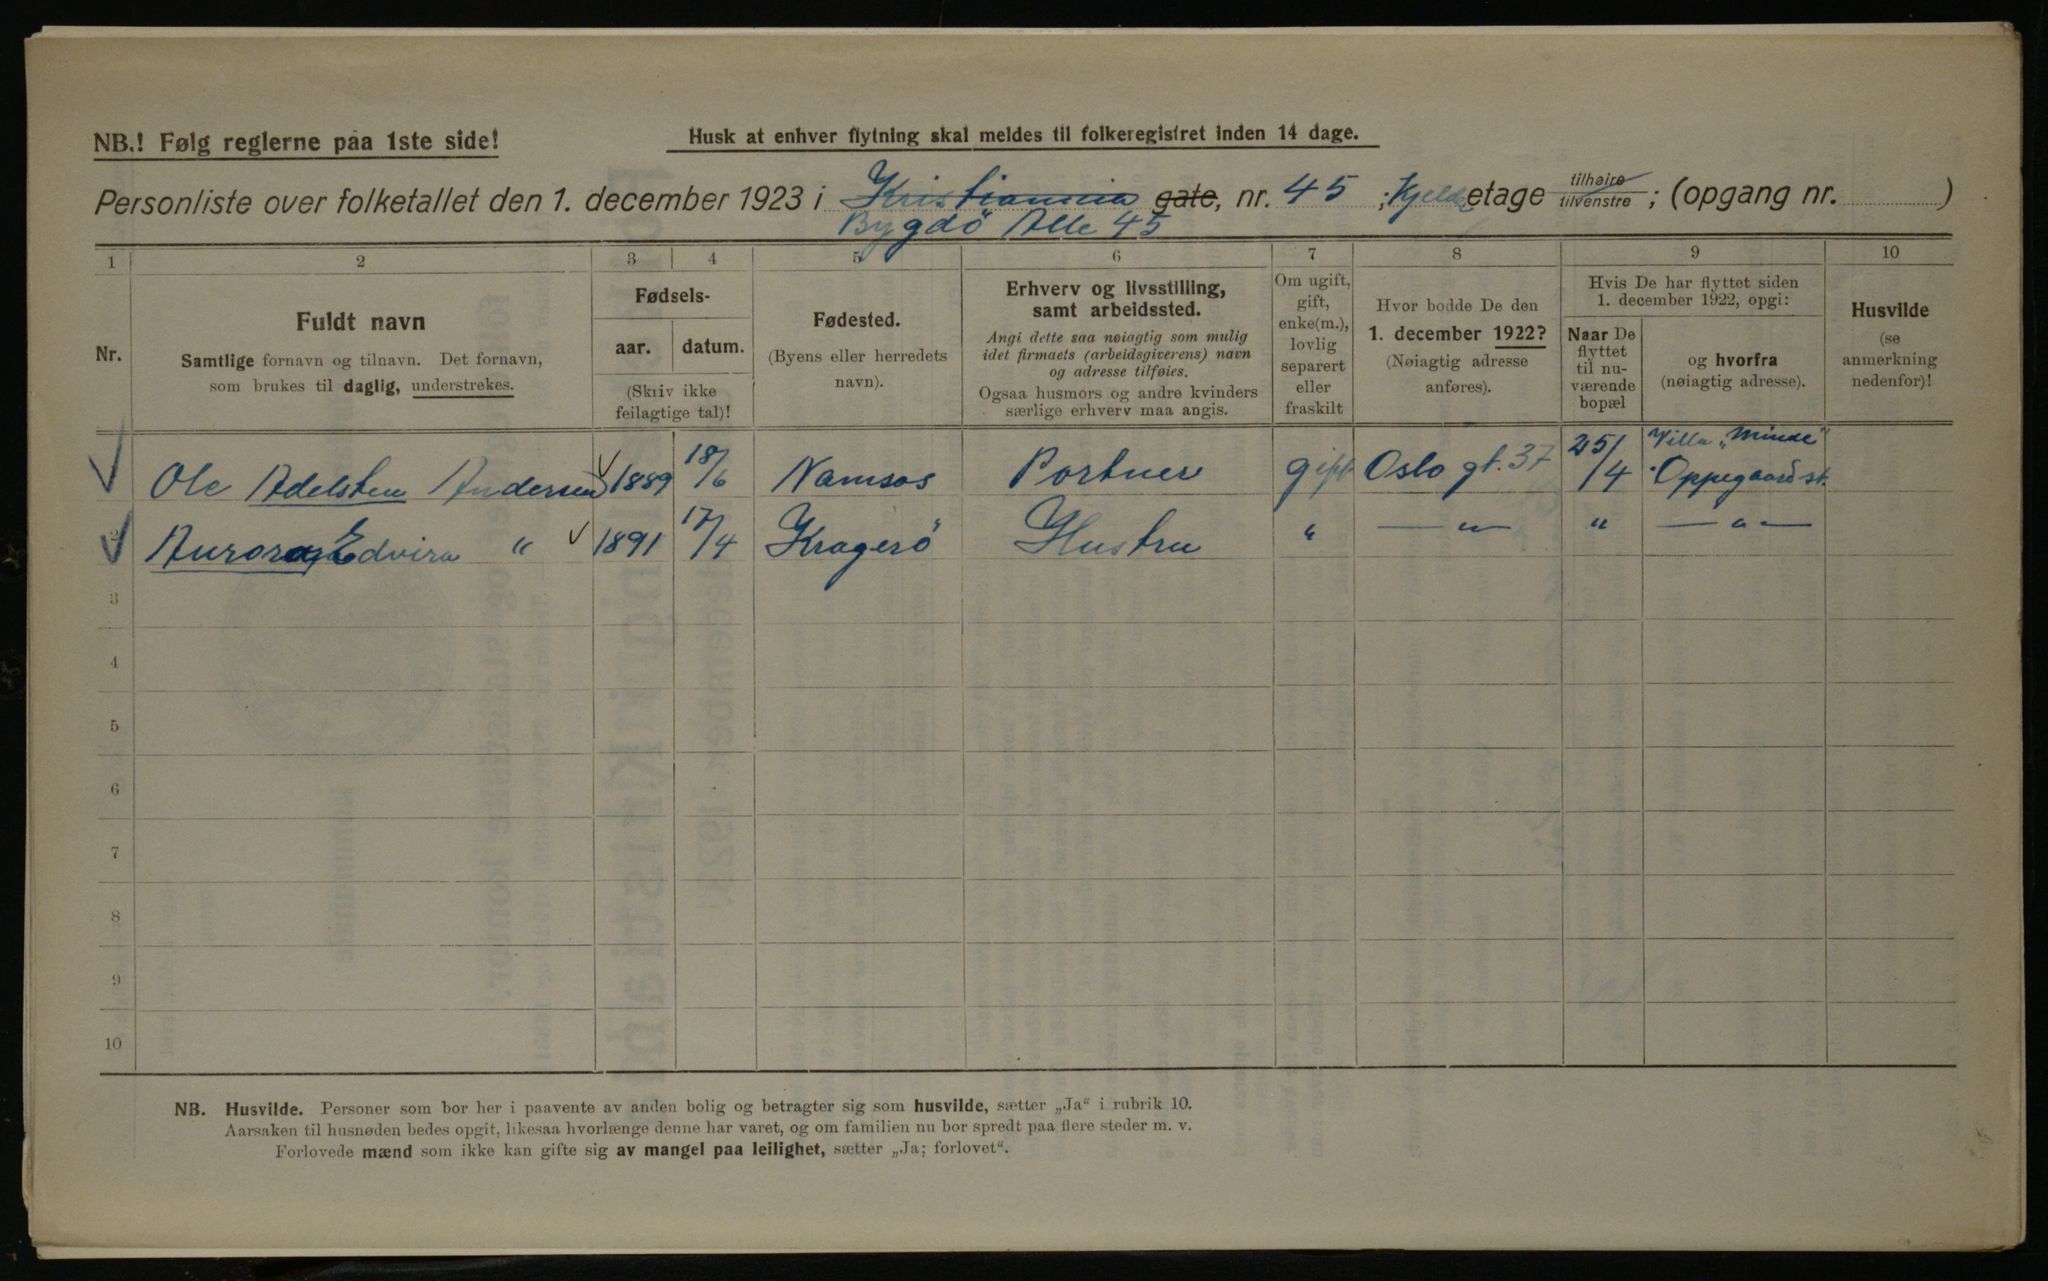 NB.! Følg reglerne paa 1ste side!
Husk at enhver flytning skal meldes til folkeregistret inden 14 dage.
Personliste over folketallet den 1. december 1923 i Kristiania gate, nr. 45 ; Kjelder etage tilhøire tilvenstre ; (opgang nr. )
Bygdö Alle 45
1 2 3 4 5 6 7 8 9 10
Nr.
Fuldt navn
Samtlige fornavn og tilnavn. Det fornavn,
som brukes til daglig, understrekes.
Fødsels-
aar. datum.
(Skriv ikke
feilagtige tal)!
Fødested.
(Byens eller herredets
navn).
Erhverv og livsstilling,
samt arbeidssted.
Angi dette saa nøiagtig som mulig
idet firmaets (arbeidsgiverens) navn
og adresse tilføies.
Ogsaa husmors og andre kvinders
særlige erhverv maa angis.
Om ugift,
gift,
enke(m.),
lovlig
separert
eller
fraskilt
Hvor bodde De den
1. december 1922?
(Nøiagtig adresse
anføres).
Hvis De har flyttet siden
1. december 1922, opgi:
Naar De
flyttet
til nu-
værende
bopæl
og hvorfra
(nøiagtig adresse).
Husvilde
(se
anmerkning
nedenfor)!
Ole Adelsten Andersen 1889 18/6 Namsos Portner gift Oslo gt. 37 25/4 Villa "Minde" Oppegaard st.
2 Aurora Edvira " 1891 17/4 Kragerö Hustru " — " — " — " —
3
4
5
6
7
8
9
10
NB. Husvilde. Personer som bor her i paavente av anden bolig og betragter sig som husvilde, sætter „Ja“ i rubrik 10.
Aarsaken til husnøden bedes opgit, likesaa hvorlænge denne har varet, og om familien nu bor spredt paa flere steder m. v.
Forlovede mænd som ikke kan gifte sig av mangel paa leilighet, sætter „Ja; forlovet“.